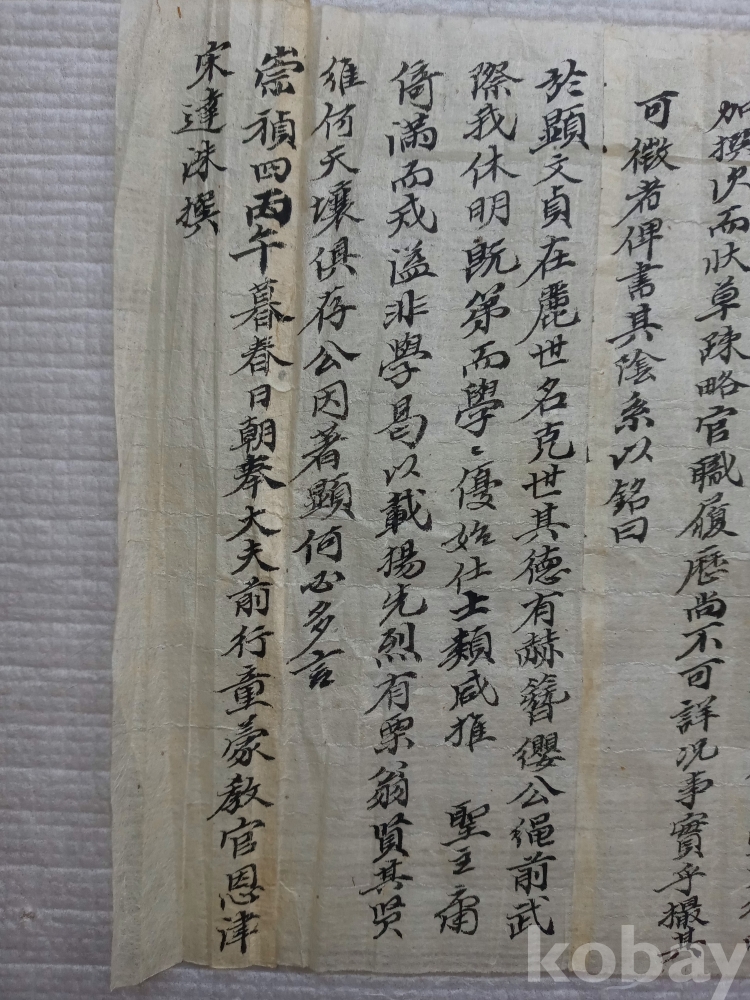 加撰次而狀草踈略官職履歷尚不可詳况事實乎撮其
可徵者俾書其陰系以銘曰
於顯文貞在麗世名克世其德有赫簪纓公繩前武
際我休明旣第而學〻優始仕士類咸推 聖主庸
倚滿而戒溢非學曷以載揚先烈有栗翁賢其贤
維何天壤俱存公因著顯何必多言
崇禎四丙午暮春日朝奉大夫前行童蒙敎官恩津
宋達洙撰
kobay